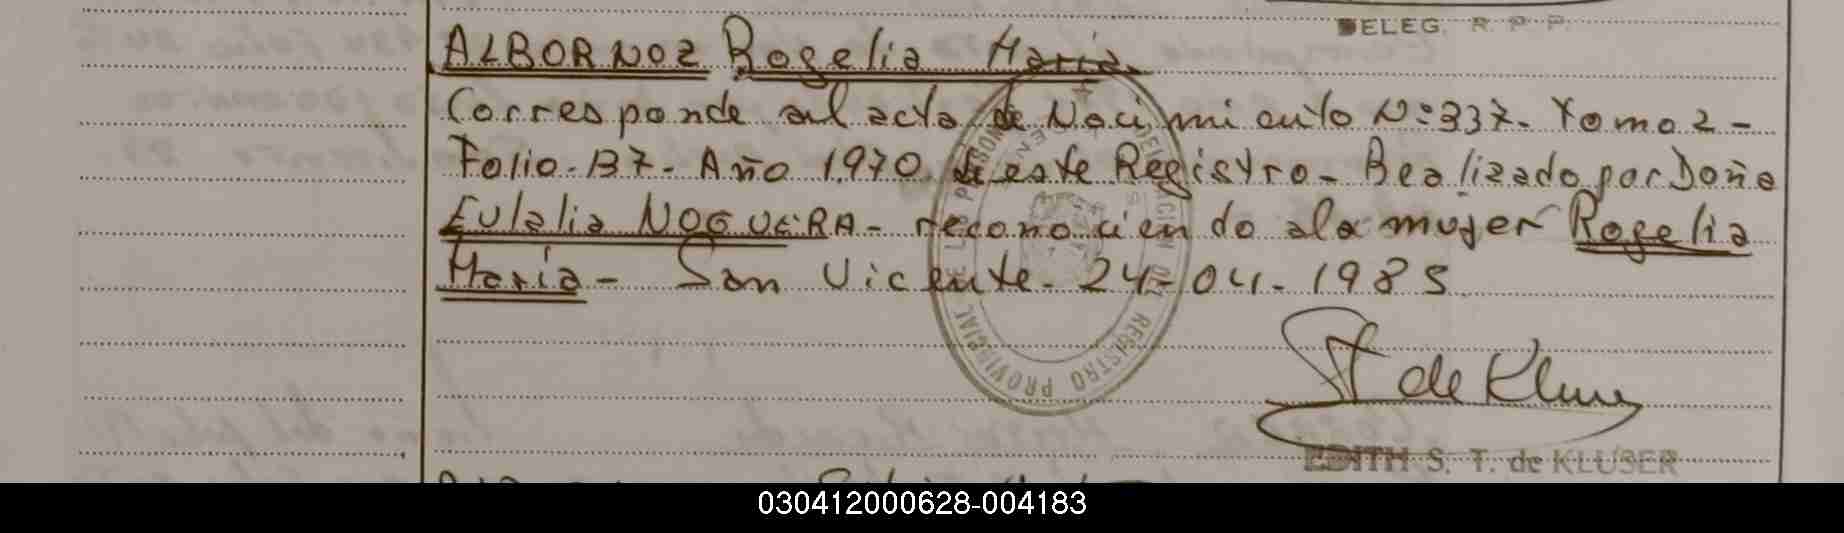 DELEG. R. P. P.
ALBORNOZ Rogelia Maria.
Corresponde al acta de Nacimiento N: 337. Tomo 2 -
Folio. 137 - Año 1970 de este Registro - Realizado por Doña
Eulalia NOGUERA - reconociendo a la mujer Rogelia
María - San Vicente. 24-04-1985
REGISTRO PROVINCIAL DE LAS PERSONAS
St de Kluser
EDITH S. T. de KLUSER
030412000628-004183